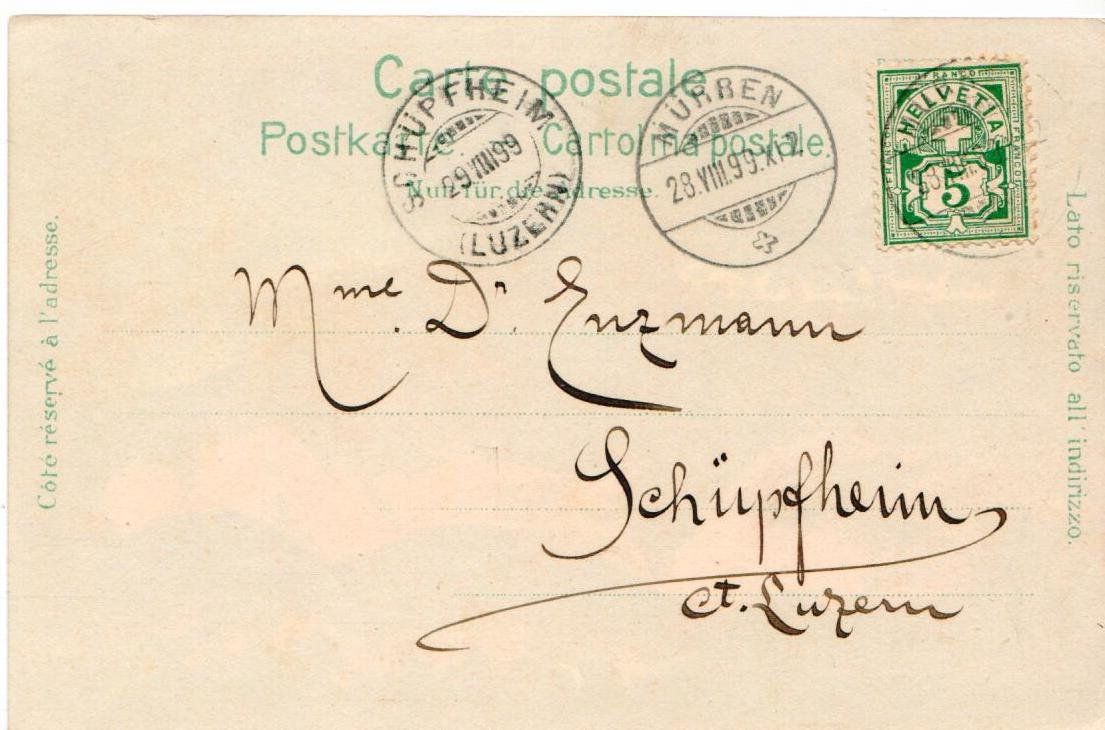 Carte postale.
Postkarte. Cartolina postale.
Nur für die Adresse.
SCHÜPFHEIM
29.VIII.99
(LUZERN)
MÜRREN
28.VIII.99.XI
FRANCO
HELVETIA
FRANCO
FRANCO
5
Côté réservé à l'adresse.
Lato riservato all' indirizzo.
Mme. Dr. Enzmann
Schüpfheim
Ct. Luzern